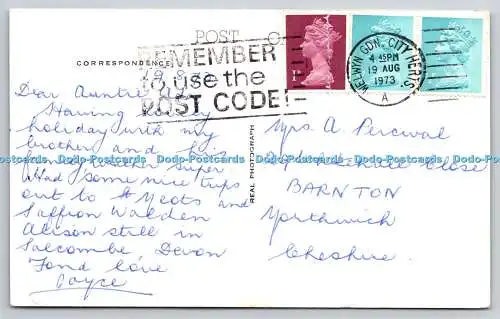 POST
CORRESPONDENCE
REMEMBER
to use the
POST CODE!
WELWYN GDN. CITY HERTS.
4 45PM
19 AUG
1973
A
Dear Auntie
Having
holiday with my
brother and his
super
Had some nice trips
out to St Neots and
Saffron Walden
Alison still in
Salcombe, Devon
Fond love
Joyce
REAL PHOTOGRAPH
Mrs. A. Percival
Close
BARNTON
Northwich
Cheshire.
Dodo-Postcards Dodo-Postcards Dodo-Postcards Dodo-Postcards Dodo-Postcards